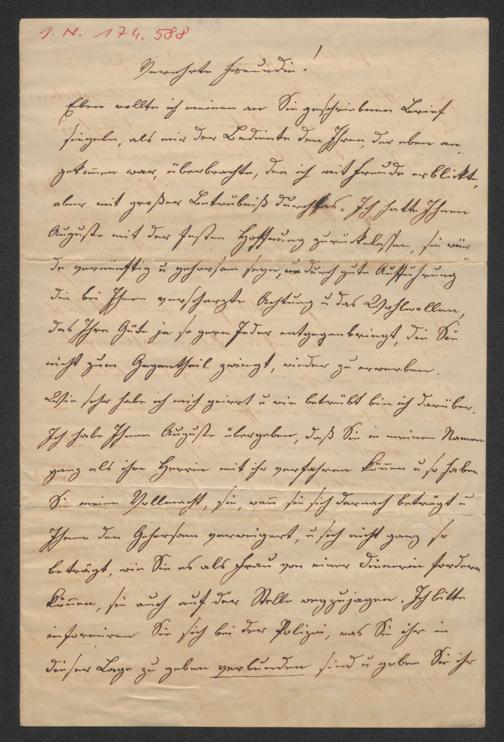 J. N. 174.588
Verehrte Freundin!
Eben wollte ich meinen an Sie geschriebenen Brief
siegeln, als mir der Bediente den Ihren, der eben an,
gekommen war, überbrachte, den ich mit Freude erblickte
aber mit großer Betrübniß durchlas. Ich hatte Ihnen
Auguste mit der festen Hoffnung zurückelassen, sie wür
de vernünftig u gehorsam seyn, u durch gute Aufführung
die bei Ihnen verscherzte Achtung u das Wohlwollen,
das Ihre Güte ja so gern Jeder entgegenbringt, die Sie
nicht zum Gegentheil zwingt, wieder zu erwerben.
Wie sehr habe ich mich geirrt u wie betrübt bin ich darüber.
Ich habe Ihnen Auguste übergeben, daß Sie in meinen Namen
ganz als ihre Herrin mit ihr verfahren können u so haben
Sie meine Vollmacht, sie, wenn sie sich darnach beträgt u
Ihnen den Gehorsam verweigert, u sich nicht ganz so
beträgt, wie Sie es als Frau von einer Dienerin fordern
können, sie auch auf der Stelle wegzujagen. Ich bitte
informiren Sie sich bei der Polizei, was Sie ihr in
dieser Lage zu geben verbunden sind u geben Sie ihr